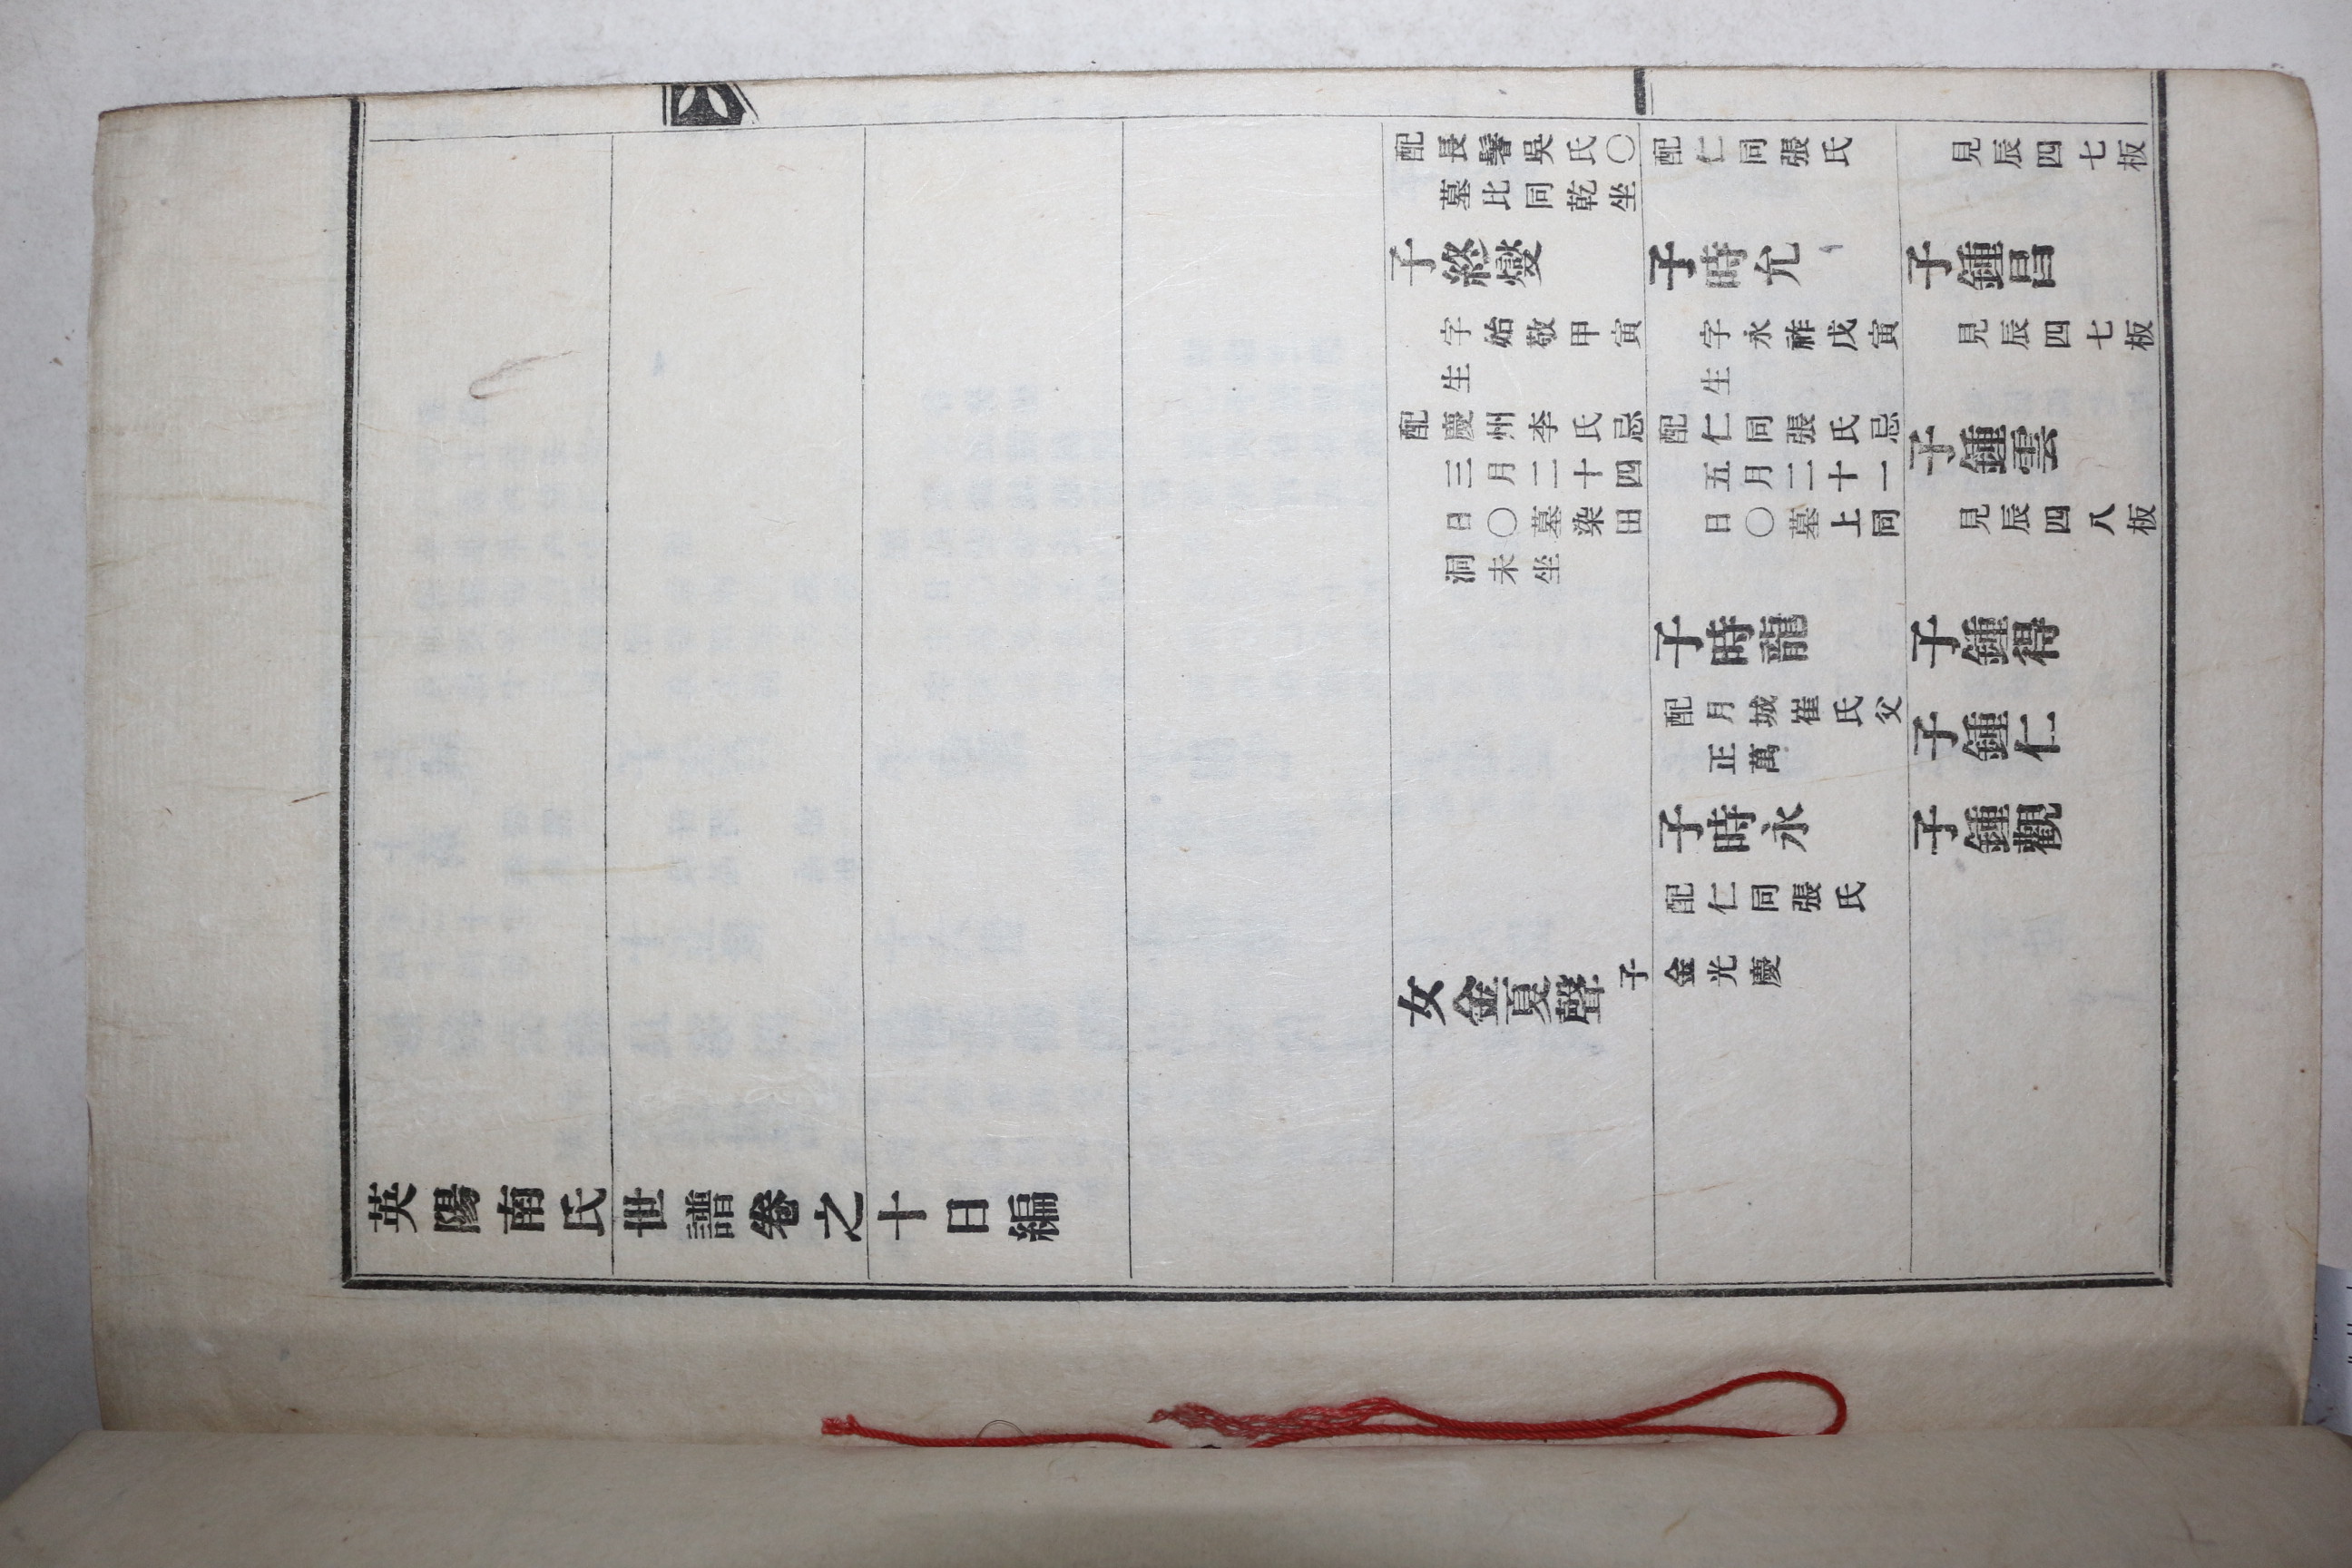 配長鬐吳氏〇
墓比同乾坐
子終燮
字始敬甲寅
生
配慶州李氏忌
三月二十四
日〇墓染田
洞未坐
女金夏聲
子金光慶
配仁同張氏
子時允
字永祚戊寅
生
配仁同張氏忌
五月二十一
日〇墓上同
子時龍
配月城崔氏父
正萬
子時永
配仁同張氏
見辰四七板
子鍾昌
見辰四七板
子鍾雲
見辰四八板
子鍾得
子鍾仁
子鍾觀
英陽南氏世譜卷之十日編